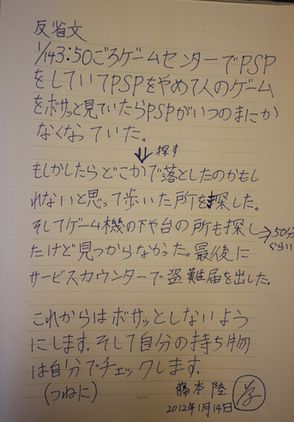 反省文
1/14 3:50ごろゲームセンターでPSP
をしていてPSPをやめて人のゲーム
をボサッと見ていたらPSPがいつのまにか
なくなっていた。
⇓ 探す
もしかしたらどこかで落としたのかもし
れないと思って歩いた所を探した。
そしてゲーム機の下や台の所も探し
たけど見つからなかった。最後に
→50分ぐらい
サービスカウンターで盗難届を出した。
これからはボサッとしないよう
にします。そして自分の持ち物
は自分でチェックします。
(つねに)
藤本 陸
2012年1月14日